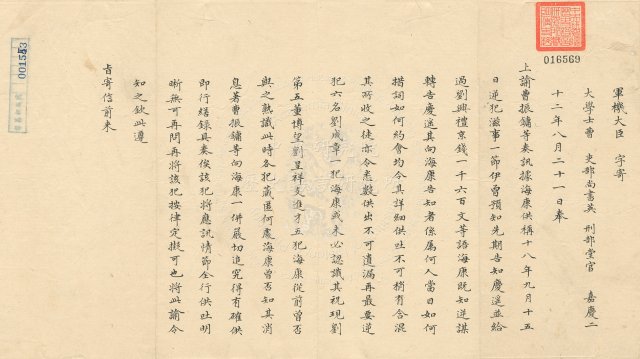 軍機大臣　字寄
大學士曹　吏部尚書英　刑部堂官　嘉慶二
十二年八月二十一日奉
上諭曹振鏞等奏訊據海康供稱十八年九月十五
日逆犯滋事一節伊曾預知先期告知慶遥並給
過劉興禮京錢一千六百文等語海康既知逆謀
轉告慶遥其向海康告知者係屬何人當日如何
措詞如何約會均令其詳細供吐不可稍有含混
其所收之徒亦令悉數供出不可遺漏再最要逆
犯六名劉成章一犯海康或未必認識其祝現劉
第五董博望劉呈祥支進才五犯海康從前曾否
與之熟識此時各犯藏匿何處海康曾否知其消
息著曹振鏞等向海康一併嚴切追究得有確供
即行繕錄具奏俟該犯將應訊情節全行供吐明
晰無可再問再將該犯按律定擬可也將此諭令
知之欽此遵
旨寄信前來
016569
001553